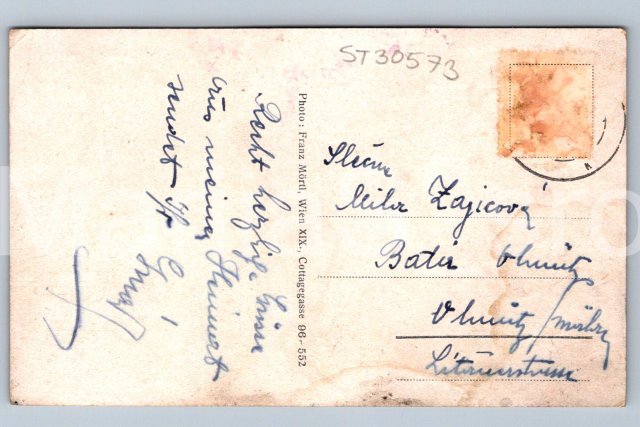 ST30573
Recht herzliche Grüsse
aus meiner Heimat
sendet Ihr
Photo: Franz Mörtl, Wien XIX., Cottagegasse 96 - 552
Slečna
Zajicová
Olmütz
Olmütz / Mähr